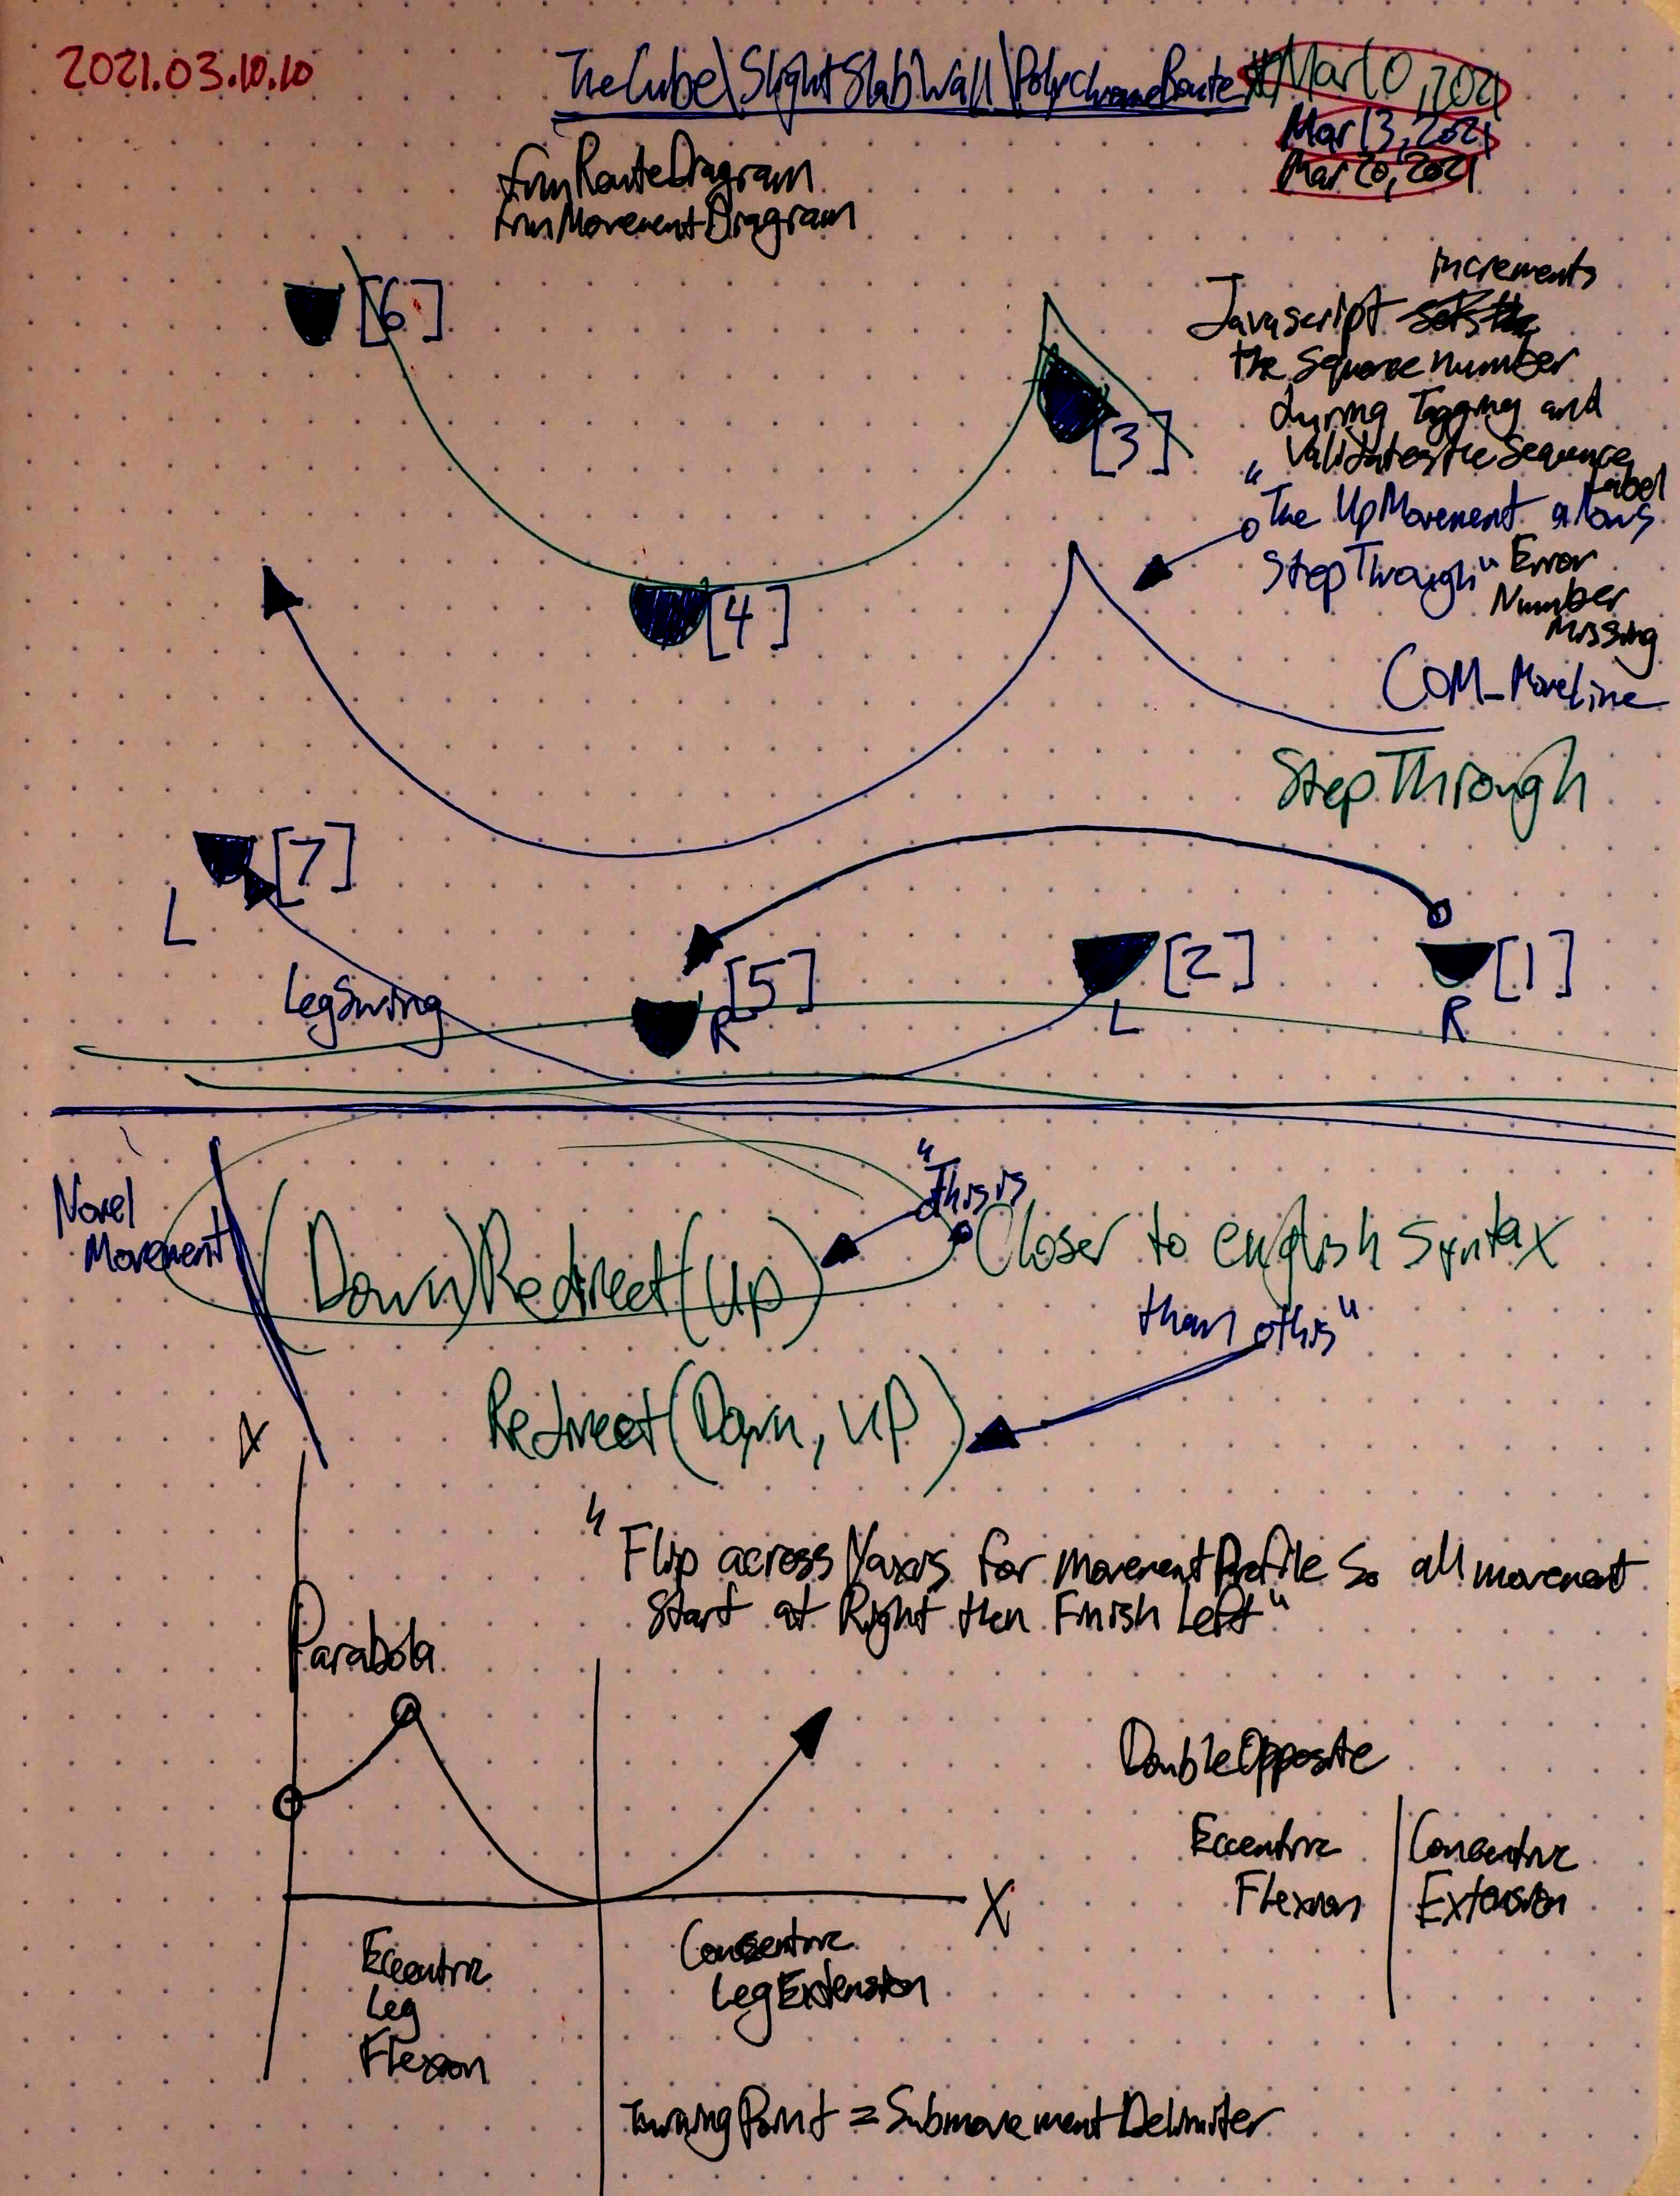 2021.03.10.10
TheCube\SlightSlabWall\PolychromeRoute
Mar10,2021
Mar13,2021
Mar20,2021
frmRouteDiagram
frmMovementDiagram
[6]
[3]
[4]
increments
Javascript
the Sequence number
during Tagging and
Validates the Sequence
Label
"The UpMovement allows
StepThrough" Error
Number
Missing
COM_MoveLine
StepThrough
[7]
L
LegSwing
[5]
R
[2]
L
[1]
R
Novel
Movement
(Down)Redirect(Up)
"This is
Closer to english Syntax
than this"
Redirect(Down, UP)
"Flip across Yaxis for MovementProfile So all movement
Start at Right then Finish Left"
Parabola
X
DoubleOpposite
Eccentric
Flexion
Concentric
Extension
Eccentric
Leg
Flexion
Concentric
LegExtension
TurningPoint = SubmovementDelimiter